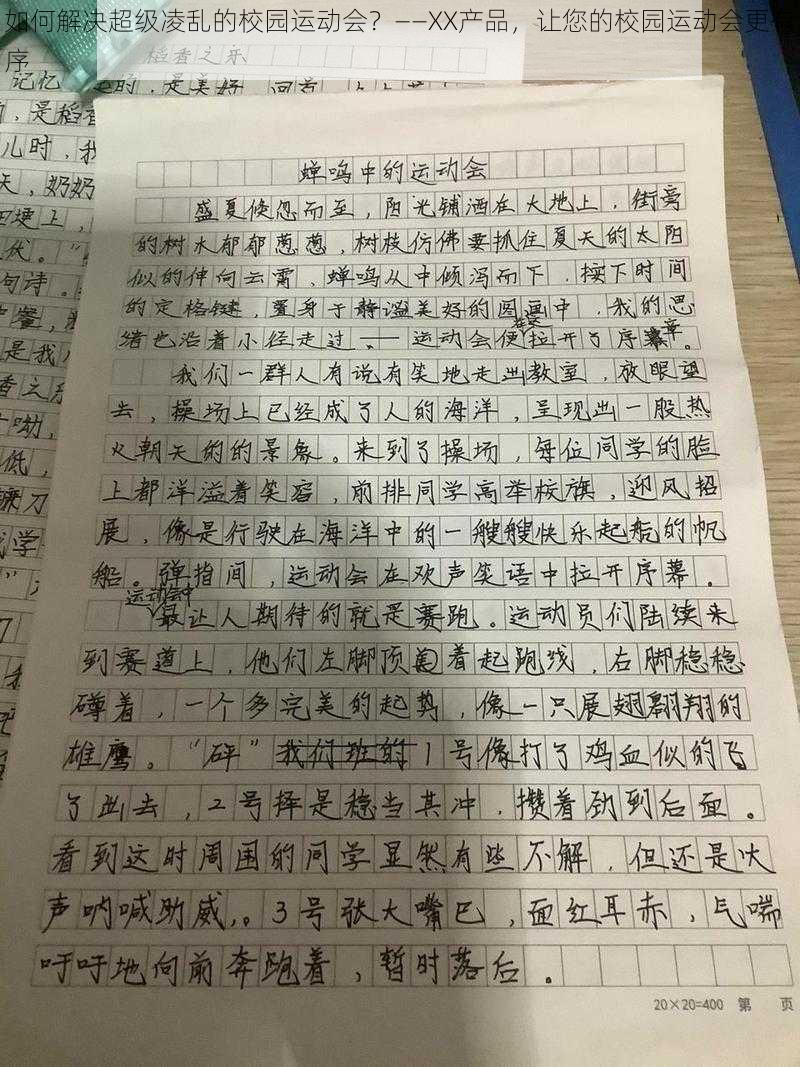 如何解决超级凌乱的校园运动会？——XX产品，让您的校园运动会更
序
稻香之乐
蝉鸣中的运动会
盛夏倏忽而至，阳光铺洒在大地上，街旁
的树木郁郁葱葱，树枝仿佛要抓住夏天的太阳
似的伸向云霄，蝉鸣从中倾泻而下，按下时间
的定格键，置身于静谧美好的图画中，我的思
绪也沿着小径走过，——运动会便拉开了序章。
我们一群人有说有笑地走出教室，放眼望
去，操场上已经成了人的海洋，呈现出一股热
火朝天的的景象。来到了操场，每位同学的脸
上都洋溢着笑容，前排同学高举校旗，迎风招
展，像是行驶在海洋中的一艘艘快乐起航的帆
船。弹指间，运动会在欢声笑语中拉开序幕。
运动会中
最让人期待的就是赛跑。运动员们陆续来
到赛道上，他们左脚顶着起跑线，右脚稳稳
蹲着，一个多完美的起势，像一只展翅翱翔的
雄鹰。“砰”我们班的1号像打了鸡血似的飞
了出去，2号择是稳当其冲，攒着劲到后面。
看到这时周围的同学显然有些不解，但还是大
声呐喊助威，。3号张大嘴巴，面红耳赤，气喘
吁吁地向前奔跑着，暂时落后。
20×20=400 第 页